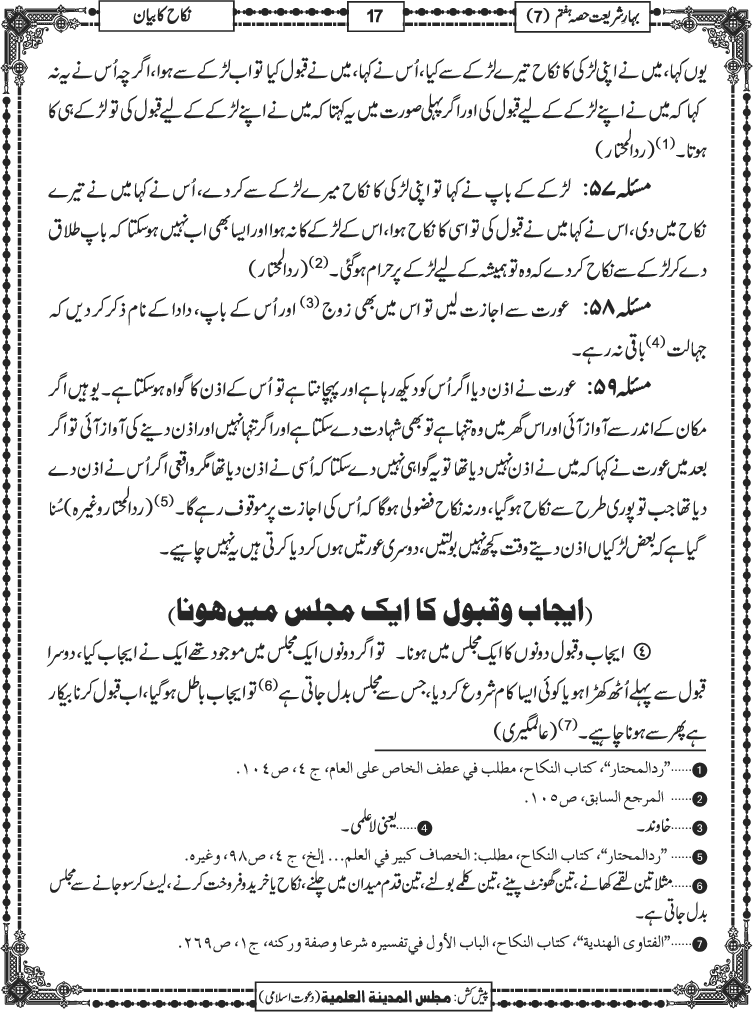 بہارِ شریعت حصہ ہفتم (7)
17
نکاح کا بیان
یوں کہا، میں نے اپنی لڑکی کا نکاح تیرے لڑکے سے کیا، اُس نے کہا، میں نے قبول کیا تو اب لڑکے سے ہوا، اگرچہ اُس نے یہ نہ
کہا کہ میں نے اپنے لڑکے کے لیے قبول کی اور اگر پہلی صورت میں یہ کہتا کہ میں نے اپنے لڑکے کے لیے قبول کی تو لڑکے ہی کا
ہوتا۔(1) (ردالمحتار)
مسئلہ ۵۷: لڑکے کے باپ نے کہا تو اپنی لڑکی کا نکاح میرے لڑکے سے کر دے، اُس نے کہا میں نے تیرے
نکاح میں دی، اس نے کہا میں نے قبول کی تو اسی کا نکاح ہوا، اس کے لڑکے کا نہ ہوا اور ایسا بھی اب نہیں ہوسکتا کہ باپ طلاق
دے کر لڑکے سے نکاح کر دے کہ وہ تو ہمیشہ کے لیے لڑکے پر حرام ہوگئی۔(2) (ردالمحتار)
مسئلہ ۵۸: عورت سے اجازت لیں تو اس میں بھی زوج(3) اور اُس کے باپ، دادا کے نام ذکر کر دیں کہ
جہالت(4) باقی نہ رہے۔
مسئلہ ۵۹: عورت نے اذن دیا اگر اُس کو دیکھ رہا ہے اور پہچانتا ہے تو اُس کے اذن کا گواہ ہوسکتا ہے۔ یوہیں اگر
مکان کے اندر سے آواز آئی اور اس گھر میں وہ تنہا ہے تو بھی شہادت دے سکتا ہے اور اگر تنہا نہیں اور اذن دینے کی آواز آئی تو اگر
بعد میں عورت نے کہا کہ میں نے اذن نہیں دیا تھا تو یہ گواہی نہیں دے سکتا کہ اُسی نے اذن دیا تھا مگر واقعی اگر اُس نے اذن دے
دیا تھا جب تو پوری طرح سے نکاح ہوگیا، ورنہ نکاح فضولی ہوگا کہ اُس کی اجازت پر موقوف رہے گا۔(5) (ردالمحتار وغیرہ) سُنا
گیا ہے کہ بعض لڑکیاں اذن دیتے وقت کچھ نہیں بولتیں، دوسری عورتیں ہوں کر دیا کرتی ہیں یہ نہیں چاہیے۔
(ایجاب و قبول کا ایک مجلس میں ہونا)
④ ایجاب و قبول دونوں کا ایک مجلس میں ہونا۔ تو اگر دونوں ایک مجلس میں موجود تھے ایک نے ایجاب کیا، دوسرا
قبول سے پہلے اُٹھ کھڑا ہوا یا کوئی ایسا کام شروع کر دیا، جس سے مجلس بدل جاتی ہے(6) تو ایجاب باطل ہوگیا، اب قبول کرنا بیکار
ہے پھر سے ہونا چاہیے۔(7) (عالمگیری)
1......”ردالمحتار“، کتاب النکاح، مطلب في عطف الخاص على العام، ج ٤، ص ١٠٤.
2...... المرجع السابق، ص ١٠٥.
3......خاوند۔ 4......یعنی لاعلمی۔
5...... ”ردالمحتار“، کتاب النکاح، مطلب: الخصاف کبیر في العلم... إلخ، ج ٤، ص ٩٨، وغیرہ.
6......مثلا تین لقمے کھانے، تین گھونٹ پینے، تین کلمے بولنے، تین قدم میدان میں چلنے، نکاح یا خرید و فروخت کرنے، لیٹ کر سو جانے سے مجلس
بدل جاتی ہے۔
7......”الفتاوى الهندیة“، کتاب النکاح، الباب الأول في تفسیره شرعا وصفة ورکنه، ج ١، ص ٢٦٩.
پیش کش: مجلس المدینة العلمیة (دعوت اسلامی)